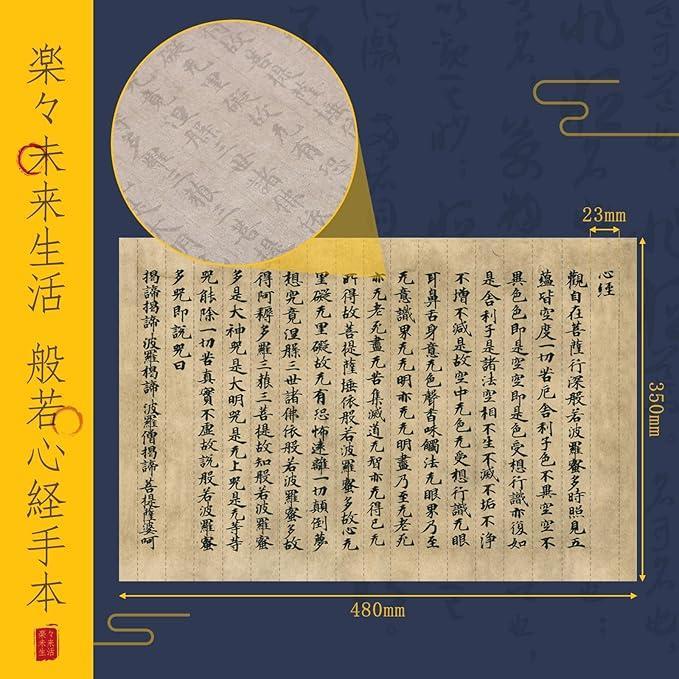 楽々未来生活 般若心経手本
楽々未来生活
23mm
350mm
480mm
心経
觀自在菩薩行深般若波羅蜜多時照見五
蘊皆空度一切苦厄舍利子色不異空空不
異色色即是空空即是色受想行識亦復如
是舍利子是諸法空相不生不滅不垢不浄
不増不減是故空中无色无受想行識无眼
耳鼻舌身意无色聲香味觸法无眼界乃至
无意識界无无明亦无无明盡乃至无老死
亦无老死盡无苦集滅道无智亦无得已无
所得故菩提薩埵依般若波羅蜜多故心无
罣礙无罣礙故无有恐怖遠離一切顛倒夢
想究竟涅槃三世諸佛依般若波羅蜜多故
得阿耨多羅三藐三菩提故知般若波羅蜜
多是大神咒是大明咒是无上咒是无等等
咒能除一切苦真實不虛故説般若波羅蜜
多咒即説咒曰
揭諦揭諦 波羅揭諦 波羅僧揭諦 菩提薩婆呵